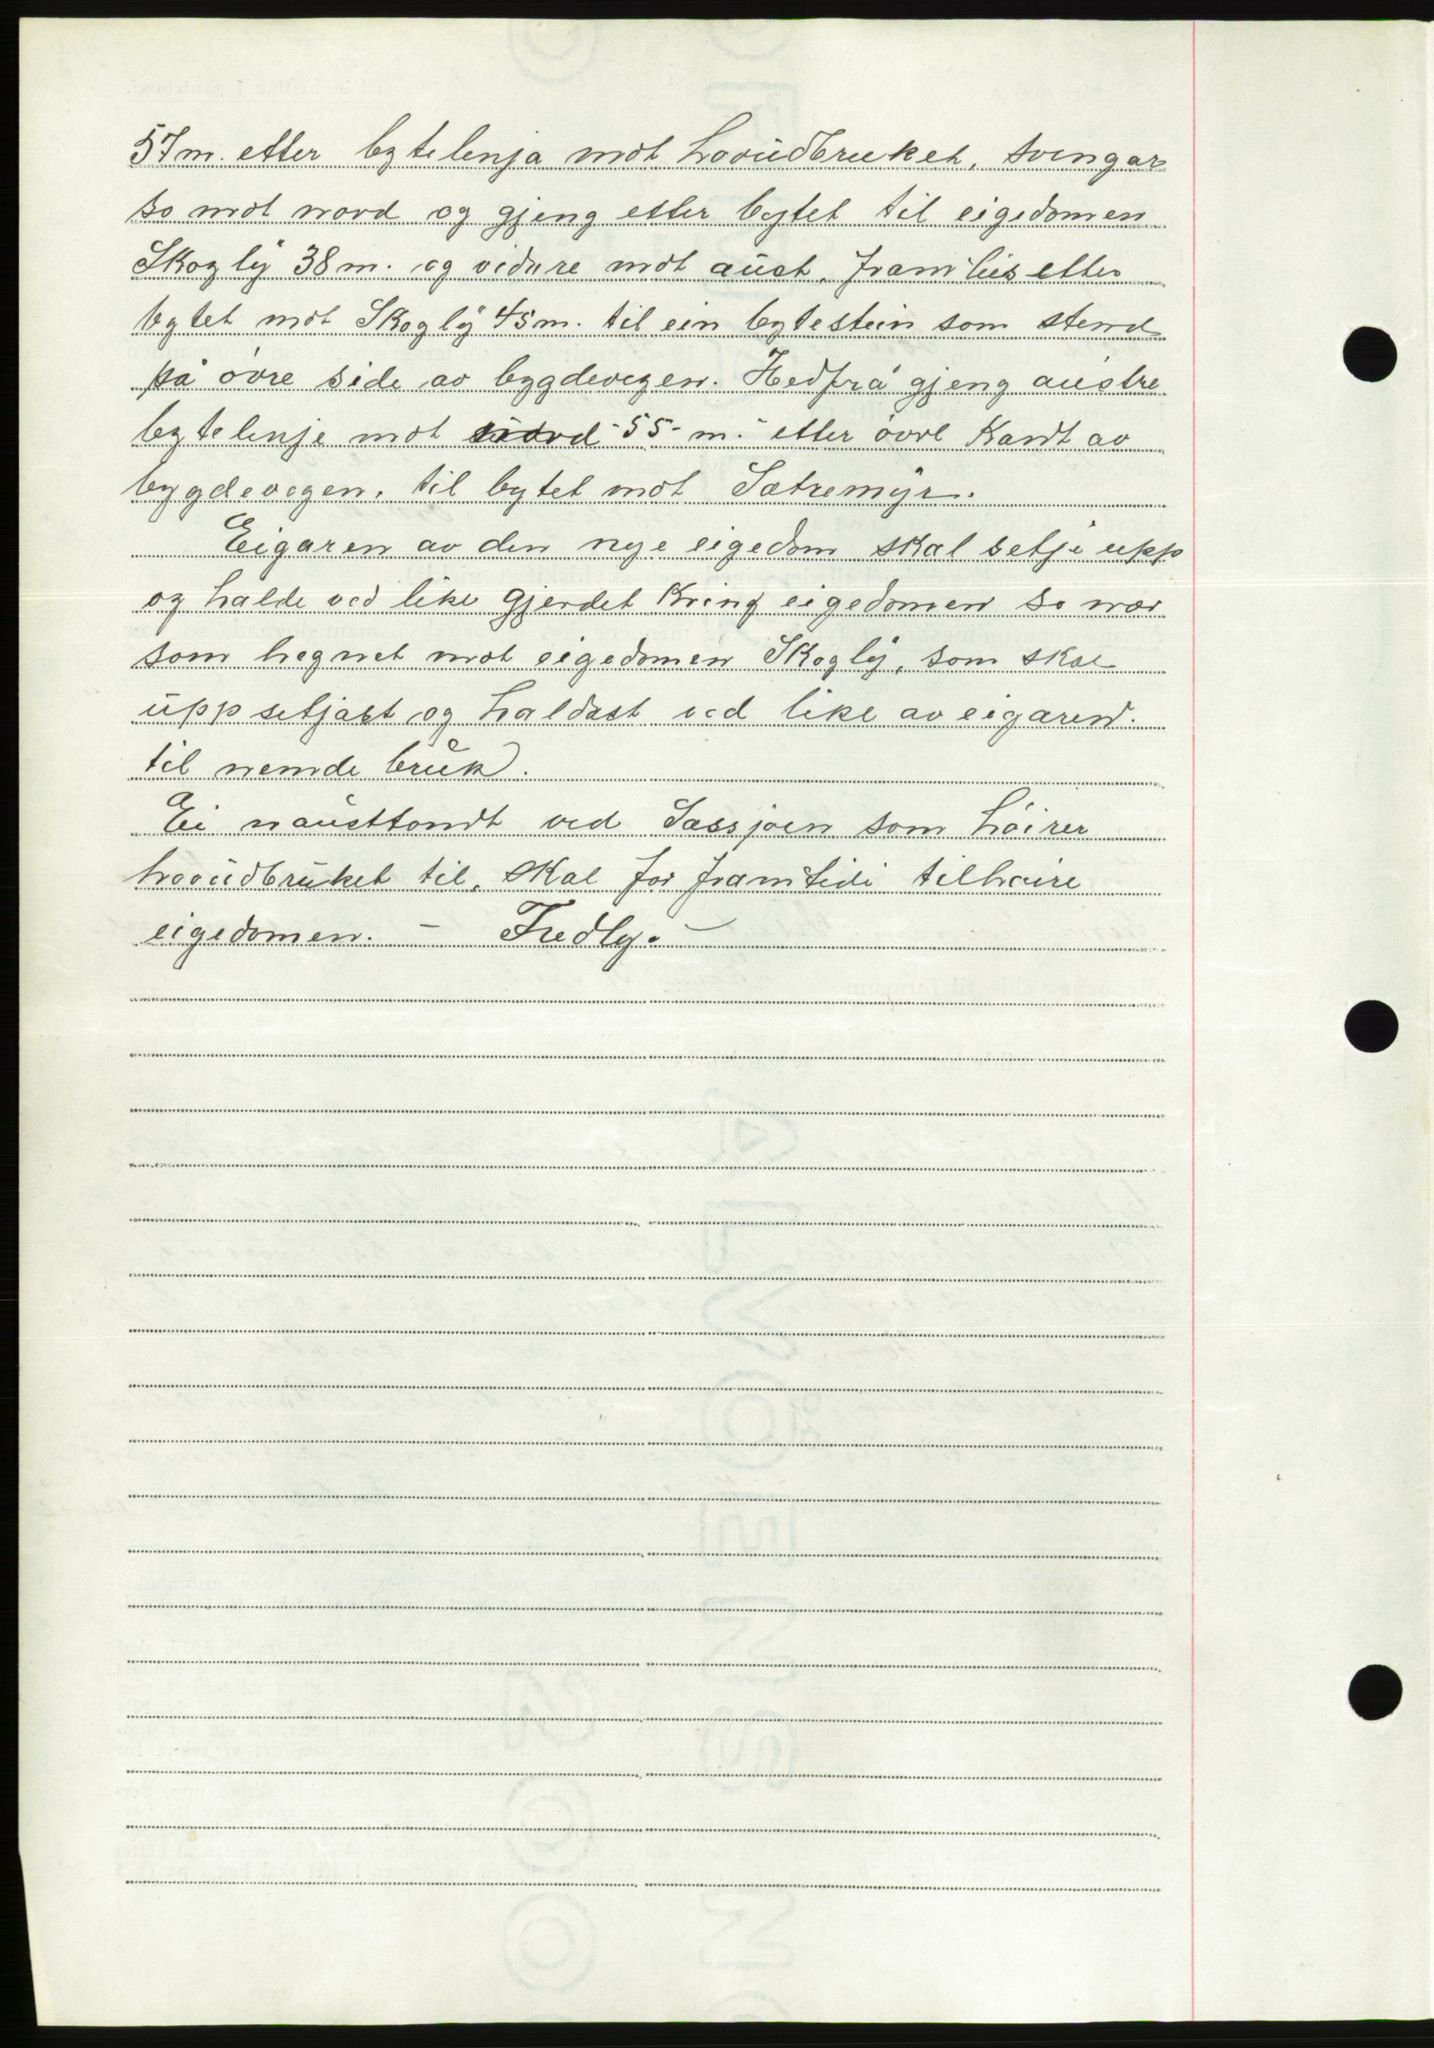 57 m. etter bytelinja mot hovudbruket, svingar
so mot nord og gjeng etter bytet til eigedomen
Skogly 38 m. og vidare mot aust, framleis etter
bytet mot Skogly 45 m. til ein bytestein som stend
på övre side av bygdevegen. Hedfrå gjeng austre
bytelinje mot nord - 55 - m. etter övre Kant av
bygdevegen, til bytet mot Sætremyr.
Eigaren av den nye eigedom skal setje upp
og halde ved like gjerdet Kring eigedomen so nær
som hegnet mot eigedomen Skogly, som skal
uppsetjast og haldast ved like av eigaren
til nemde bruk.
Ei nausttomt ved Sæssjöen som höirer
hovudbruket til, skal for framtidi tilhöire
eigedomen. - Fredly. -